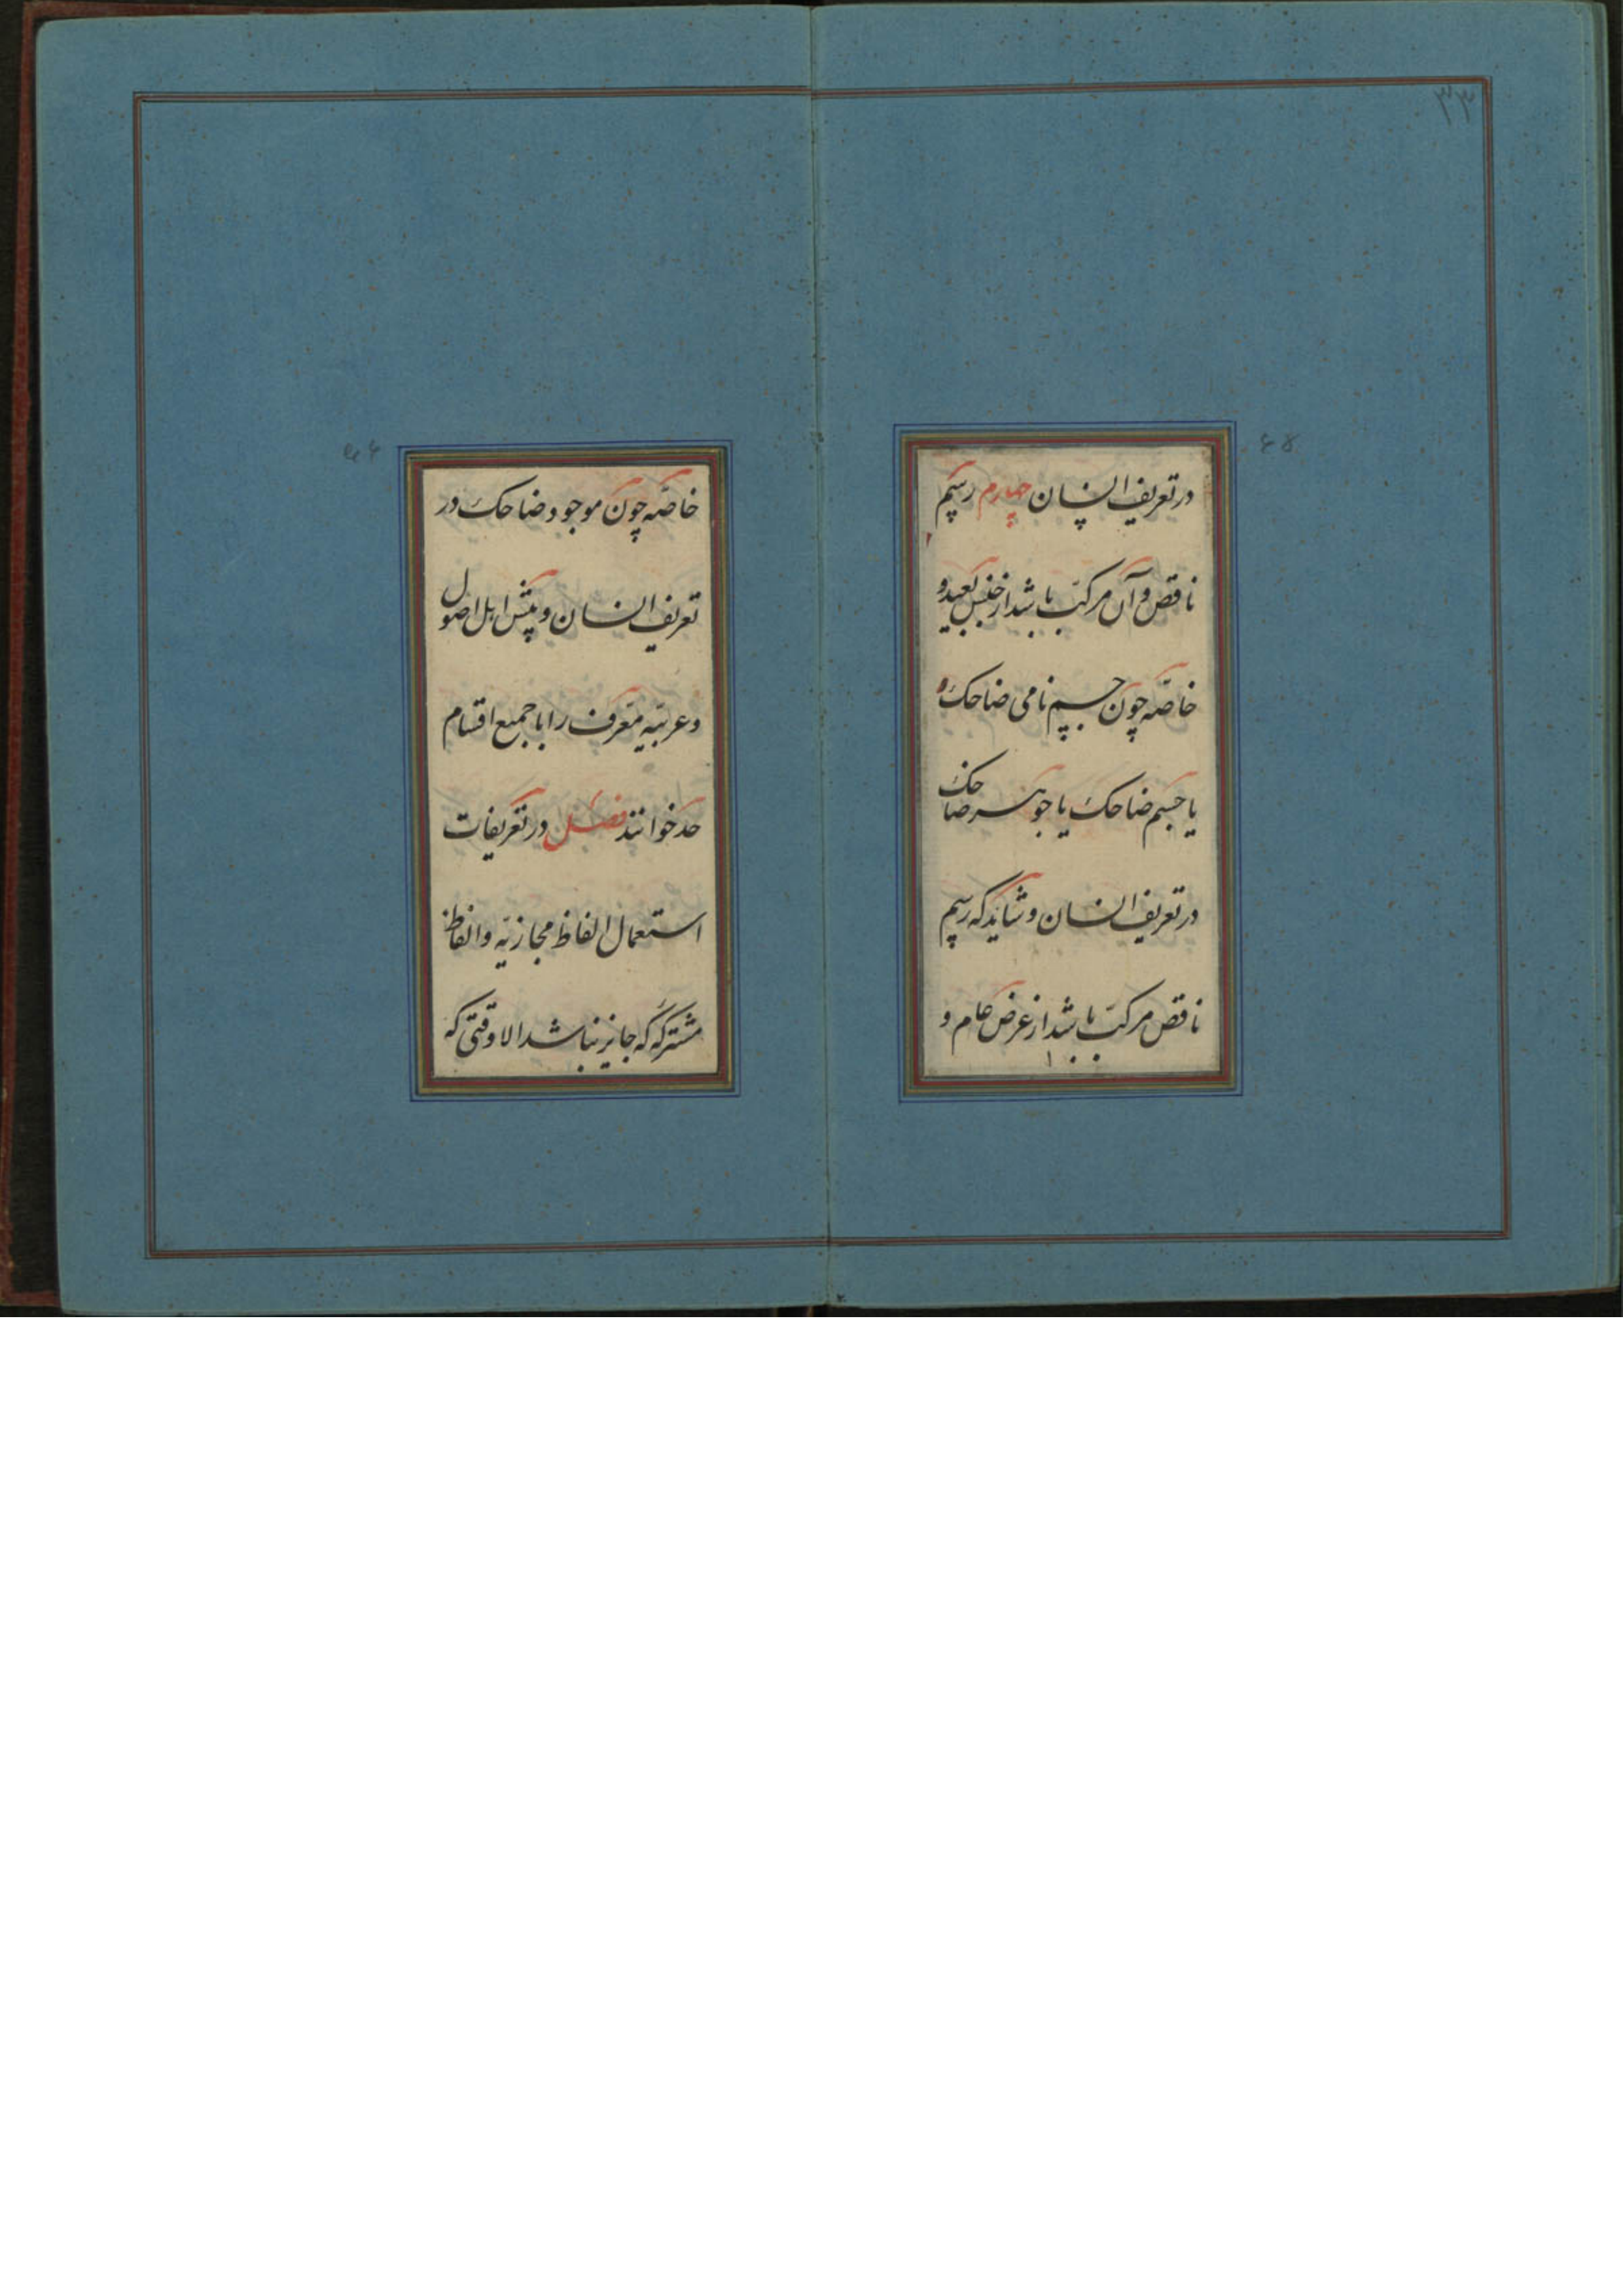 ۳۳
در تعریف انسان چهارم رسم
ناقص و آن مرکب باشد از جنس بعید و
خاصه چون جسم نامی ضاحک
یا جسم ضاحک یا جوهر ضاحک
در تعریف انسان و شاید که رسم
ناقص مرکب باشد از عرض عام و
خاصه چون موجود ضاحک در
تعریف انسان و پیش اهل اصول
و عربیه معرف را با جمیع اقسام
حد خوانند فصل در تعریفات
استعمال الفاظ مجازیه و الفاظ
مشترکه که جایز نباشد الا وقتی که